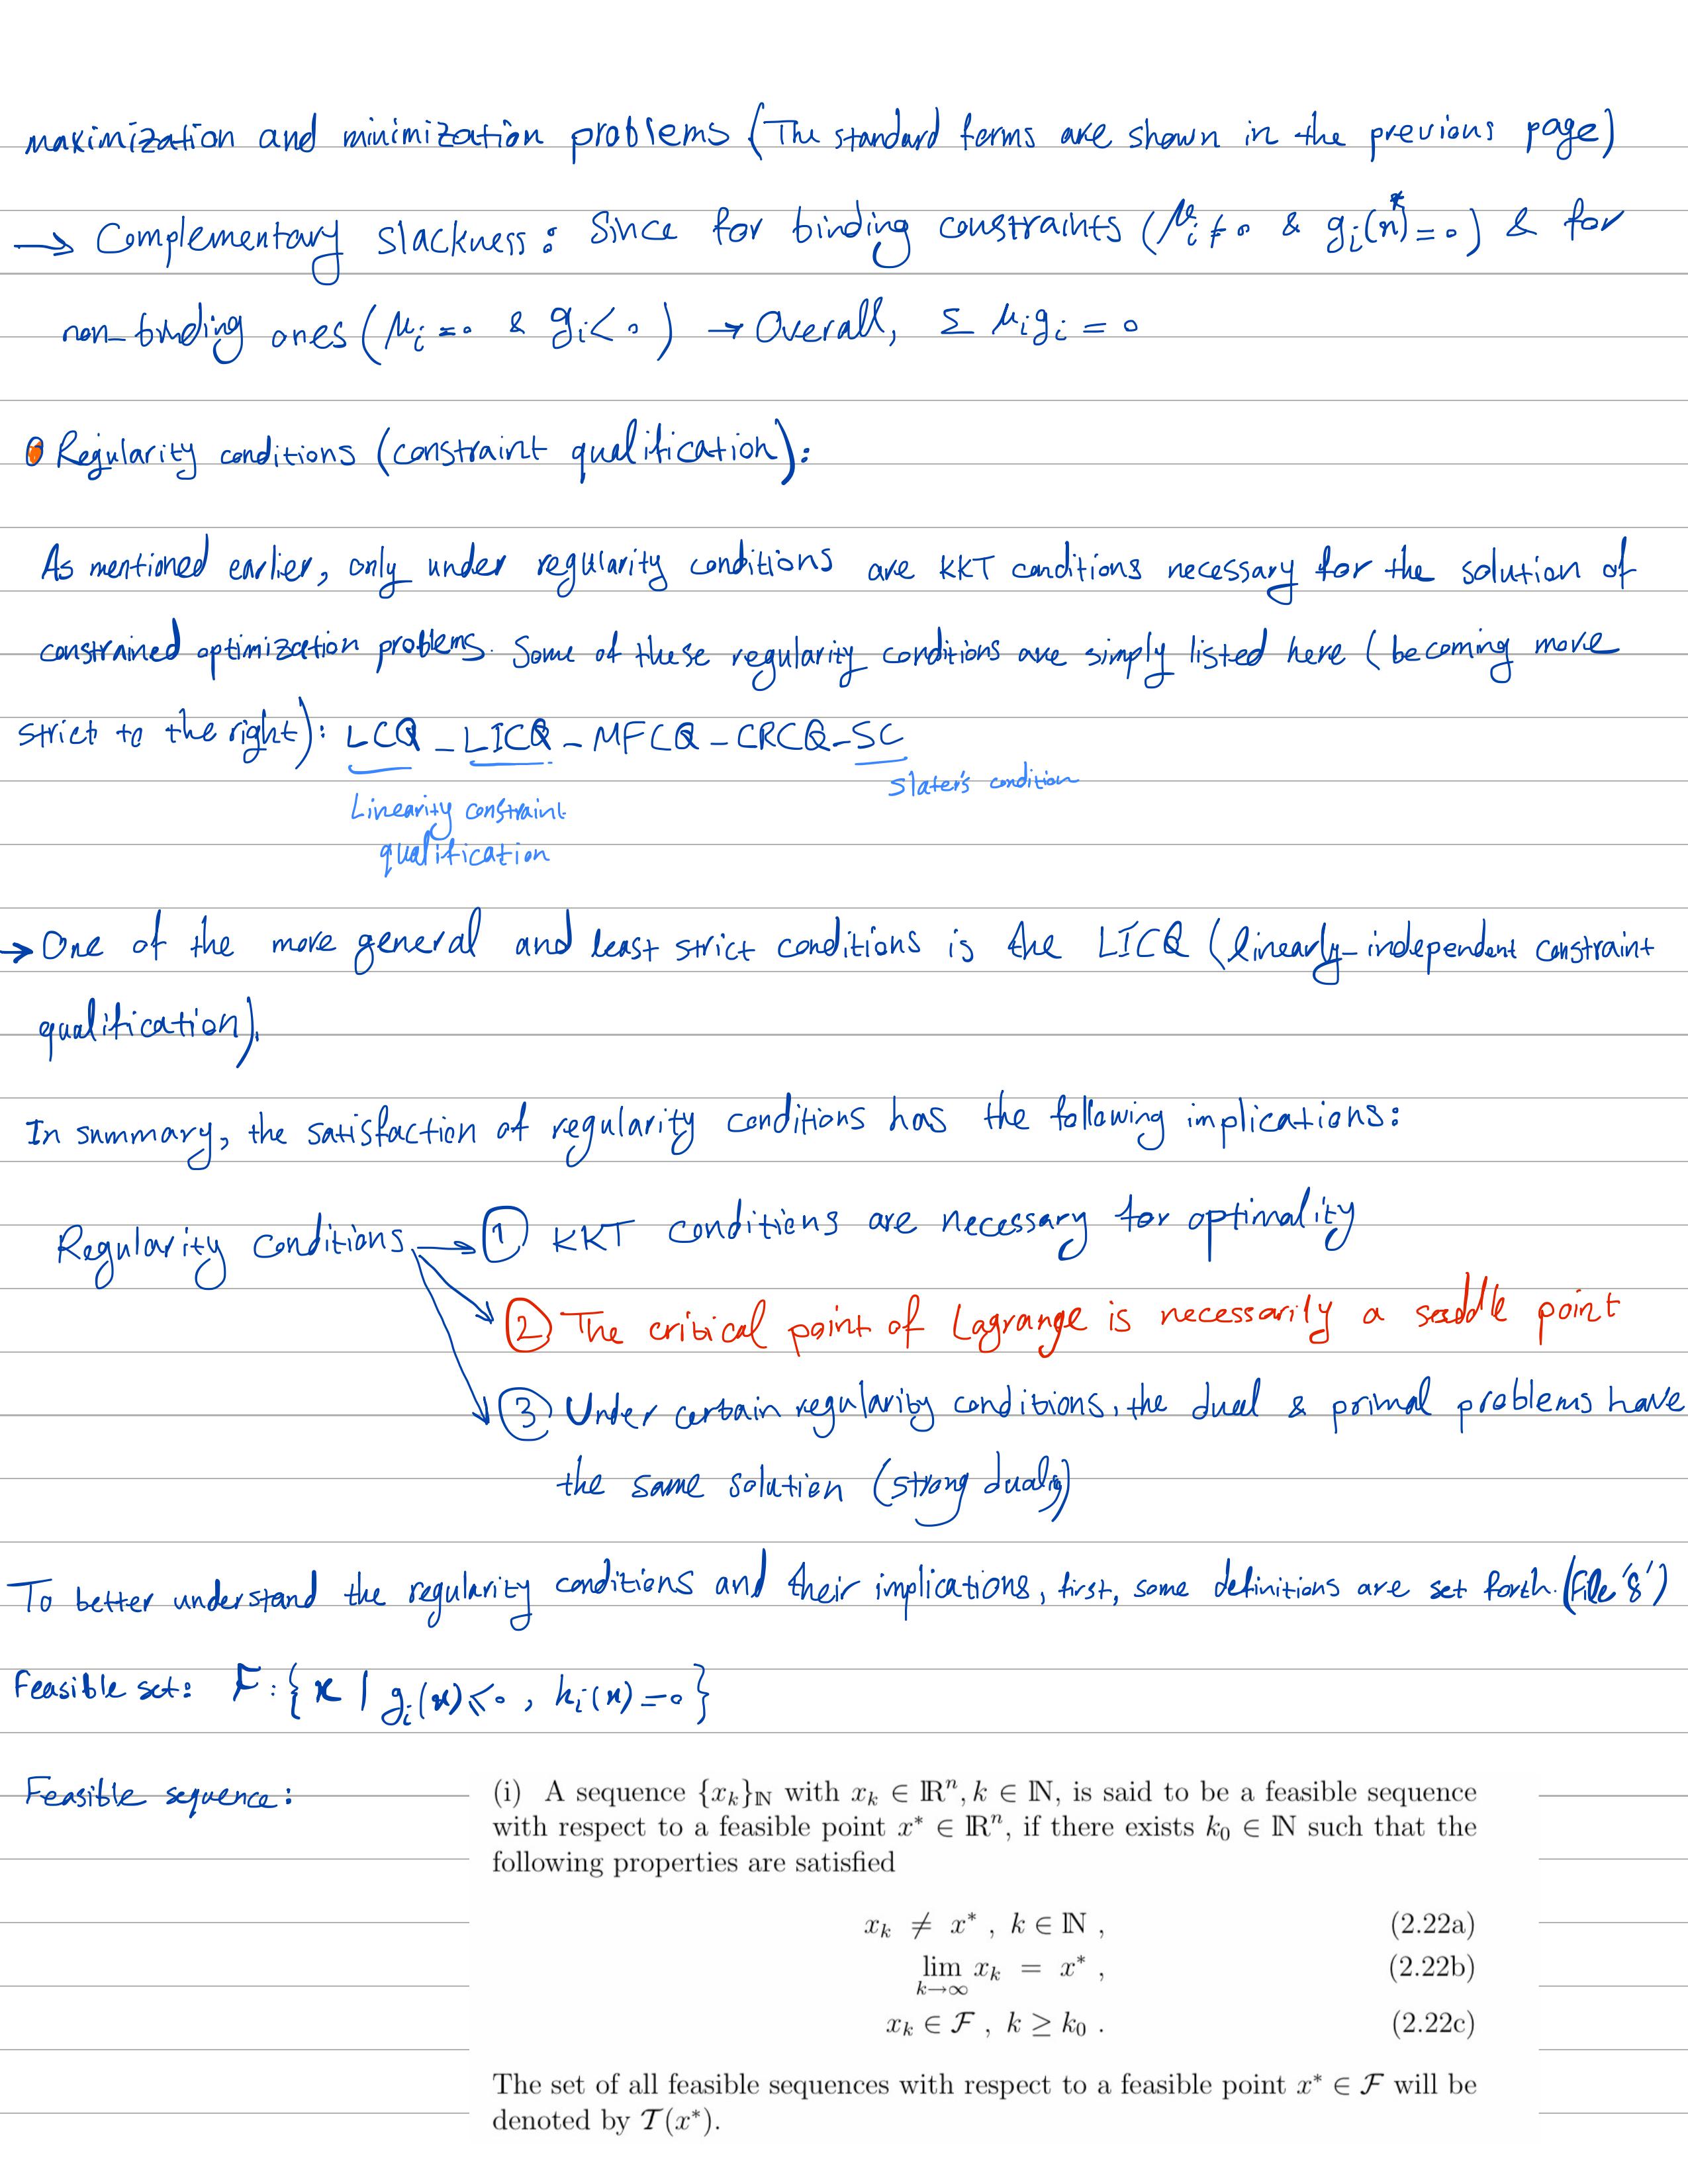 maximization and minimization problems (The standard forms are shown in the previous page)
→ Complementary slackness: Since for binding constraints (μᵢ ≠ 0 & gᵢ(x*) = 0) & for
non-binding ones (μᵢ = 0 & gᵢ < 0) → Overall, Σ μᵢgᵢ = 0
Regularity conditions (constraint qualification):
As mentioned earlier, only under regularity conditions are KKT conditions necessary for the solution of
constrained optimization problems. Some of these regularity conditions are simply listed here (becoming more
strict to the right): LCQ – LICQ – MFCQ – CRCQ – SC
Slater's condition
Linearity constraint
qualification
→ One of the more general and least strict conditions is the LICQ (linearly-independent constraint
qualification).
In summary, the satisfaction of regularity conditions has the following implications:
Regularity conditions → ① KKT conditions are necessary for optimality
② The critical point of Lagrange is necessarily a saddle point
③ Under certain regularity conditions, the dual & primal problems have
the same solution (strong duality)
To better understand the regularity conditions and their implications, first, some definitions are set forth. (File '8')
Feasible set: F: {x | gᵢ(x) ⩽ 0, hᵢ(x) = 0}
Feasible sequence:
(i) A sequence {xₖ}ℕ with xₖ ∈ ℝⁿ, k ∈ ℕ, is said to be a feasible sequence
with respect to a feasible point x* ∈ ℝⁿ, if there exists k₀ ∈ ℕ such that the
following properties are satisfied
xₖ ≠ x* , k ∈ ℕ , (2.22a)
lim xₖ = x* , (2.22b)
k→∞
xₖ ∈ ℱ , k ≥ k₀ . (2.22c)
The set of all feasible sequences with respect to a feasible point x* ∈ ℱ will be
denoted by 𝒯(x*).